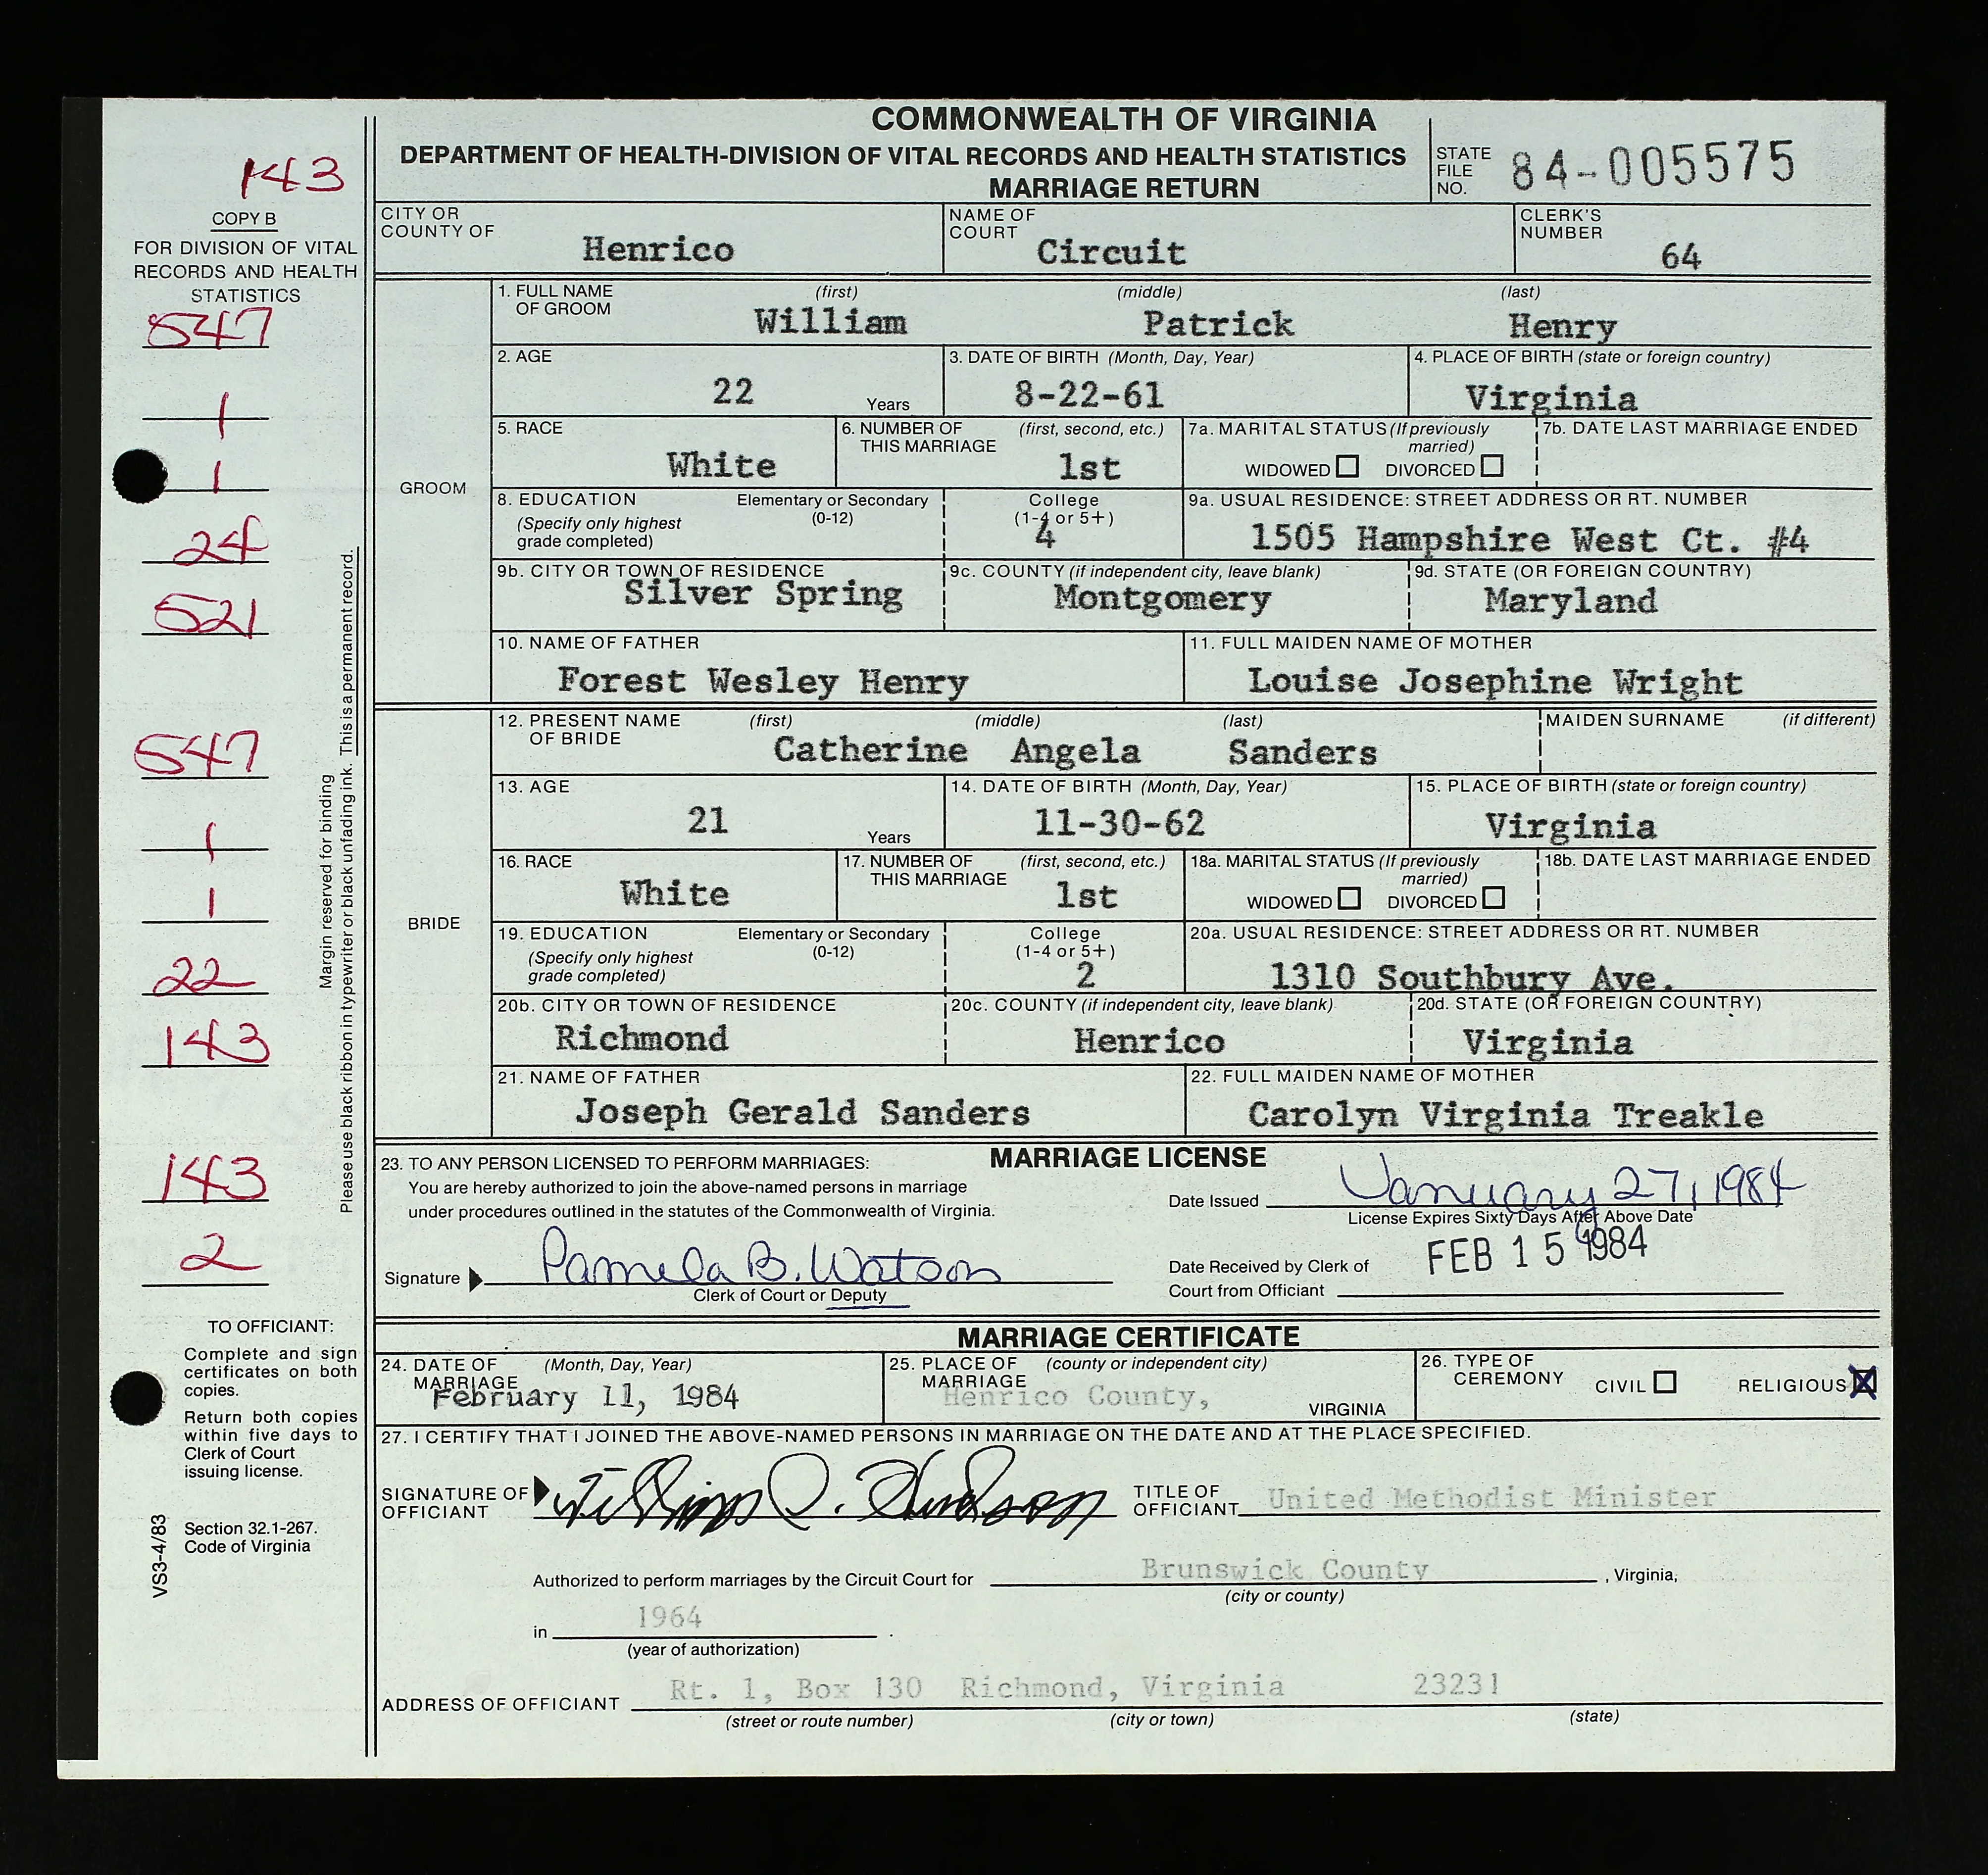 COMMONWEALTH OF VIRGINIA
DEPARTMENT OF HEALTH-DIVISION OF VITAL RECORDS AND HEALTH STATISTICS
MARRIAGE RETURN
STATE FILE NO. 84-005575
143
COPY B
FOR DIVISION OF VITAL
RECORDS AND HEALTH
STATISTICS
547
1
1
24
521
547
1
1
22
143
143
2
Margin reserved for binding
Please use black ribbon in typewriter or black unfading ink. This is a permanent record.
TO OFFICIANT:
Complete and sign
certificates on both
copies.
Return both copies
within five days to
Clerk of Court
issuing license.
Section 32.1-267.
Code of Virginia
VS3-4/83
CITY OR COUNTY OF Henrico
NAME OF COURT Circuit
CLERK'S NUMBER 64
GROOM
1. FULL NAME OF GROOM (first) William (middle) Patrick (last) Henry
2. AGE 22 Years
3. DATE OF BIRTH (Month, Day, Year) 8-22-61
4. PLACE OF BIRTH (state or foreign country) Virginia
5. RACE White
6. NUMBER OF THIS MARRIAGE (first, second, etc.) 1st
7a. MARITAL STATUS (If previously married) WIDOWED DIVORCED
7b. DATE LAST MARRIAGE ENDED
8. EDUCATION (Specify only highest grade completed) Elementary or Secondary (0-12) College (1-4 or 5+) 4
9a. USUAL RESIDENCE: STREET ADDRESS OR RT. NUMBER 1505 Hampshire West Ct. #4
9b. CITY OR TOWN OF RESIDENCE Silver Spring
9c. COUNTY (if independent city, leave blank) Montgomery
9d. STATE (OR FOREIGN COUNTRY) Maryland
10. NAME OF FATHER Forest Wesley Henry
11. FULL MAIDEN NAME OF MOTHER Louise Josephine Wright
BRIDE
12. PRESENT NAME OF BRIDE (first) Catherine (middle) Angela (last) Sanders
MAIDEN SURNAME (if different)
13. AGE 21 Years
14. DATE OF BIRTH (Month, Day, Year) 11-30-62
15. PLACE OF BIRTH (state or foreign country) Virginia
16. RACE White
17. NUMBER OF THIS MARRIAGE (first, second, etc.) 1st
18a. MARITAL STATUS (If previously married) WIDOWED DIVORCED
18b. DATE LAST MARRIAGE ENDED
19. EDUCATION (Specify only highest grade completed) Elementary or Secondary (0-12) College (1-4 or 5+) 2
20a. USUAL RESIDENCE: STREET ADDRESS OR RT. NUMBER 1310 Southbury Ave.
20b. CITY OR TOWN OF RESIDENCE Richmond
20c. COUNTY (if independent city, leave blank) Henrico
20d. STATE (OR FOREIGN COUNTRY) Virginia
21. NAME OF FATHER Joseph Gerald Sanders
22. FULL MAIDEN NAME OF MOTHER Carolyn Virginia Treakle
MARRIAGE LICENSE
23. TO ANY PERSON LICENSED TO PERFORM MARRIAGES:
You are hereby authorized to join the above-named persons in marriage
under procedures outlined in the statutes of the Commonwealth of Virginia.
Date Issued January 27, 1984
License Expires Sixty Days After Above Date
Signature Pamela B. Watson
Clerk of Court or Deputy
Date Received by Clerk of Court from Officiant FEB 15 1984
MARRIAGE CERTIFICATE
24. DATE OF MARRIAGE (Month, Day, Year) February 11, 1984
25. PLACE OF MARRIAGE (county or independent city) Henrico County, VIRGINIA
26. TYPE OF CEREMONY CIVIL RELIGIOUS X
27. I CERTIFY THAT I JOINED THE ABOVE-NAMED PERSONS IN MARRIAGE ON THE DATE AND AT THE PLACE SPECIFIED.
SIGNATURE OF OFFICIANT
TITLE OF OFFICIANT United Methodist Minister
Authorized to perform marriages by the Circuit Court for Brunswick County, Virginia,
(city or county)
in 1964.
(year of authorization)
ADDRESS OF OFFICIANT Rt. 1, Box 130 Richmond, Virginia 23231
(street or route number) (city or town) (state)